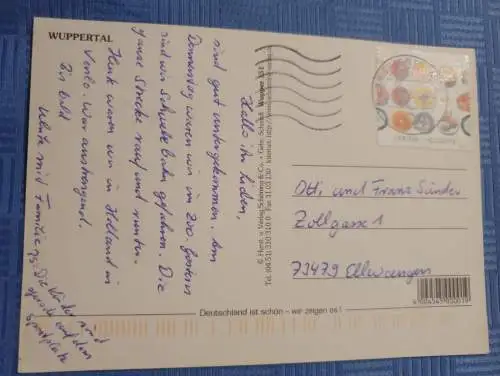 WUPPERTAL
Hallo ihr Lieben,
sind gut untergekommen. Am
Donnerstag waren wir im Zoo. Gestern
sind wir Schwebebahn gefahren. Die
ganze Strecke rauf und runter.
Heute waren wir in Holland in
Venlo. War anstrengend.
Bis bald
Ulrike mit Familie
PS: Die Kinder sind
gerade auf dem
Spielplatz
© Horst u. Verlag Schöning & Co. + Gebr. Schmidt
Tel. (04 51) 3 10 31 0 Fax 31 03 120
Otti und Franz Sünder
Zollgasse 1
73479 Ellwangen
Deutschland ist schön – wir zeigen es!